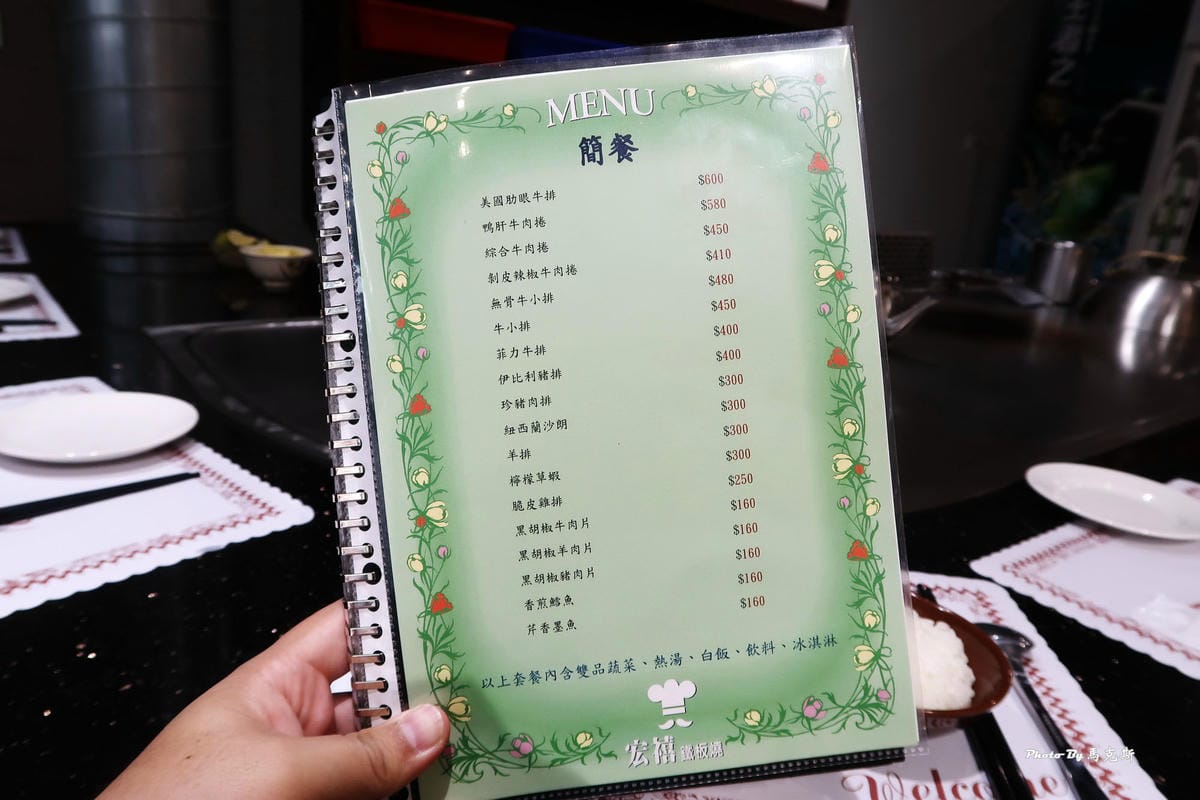 MENU
簡餐
美國肋眼牛排 $600
鴨肝牛肉捲 $580
綜合牛肉捲 $450
剝皮辣椒牛肉捲 $410
無骨牛小排 $480
牛小排 $450
菲力牛排 $400
伊比利豬排 $400
珍豬肉排 $300
紐西蘭沙朗 $300
羊排 $300
檸檬草蝦 $300
脆皮雞排 $250
黑胡椒牛肉片 $160
黑胡椒羊肉片 $160
黑胡椒豬肉片 $160
香煎鱈魚 $160
芹香墨魚 $160
以上套餐內含雙品蔬菜、熱湯、白飯、飲料、冰淇淋
宏禧 鐵板燒
Welcome
Photo By 馬克斯